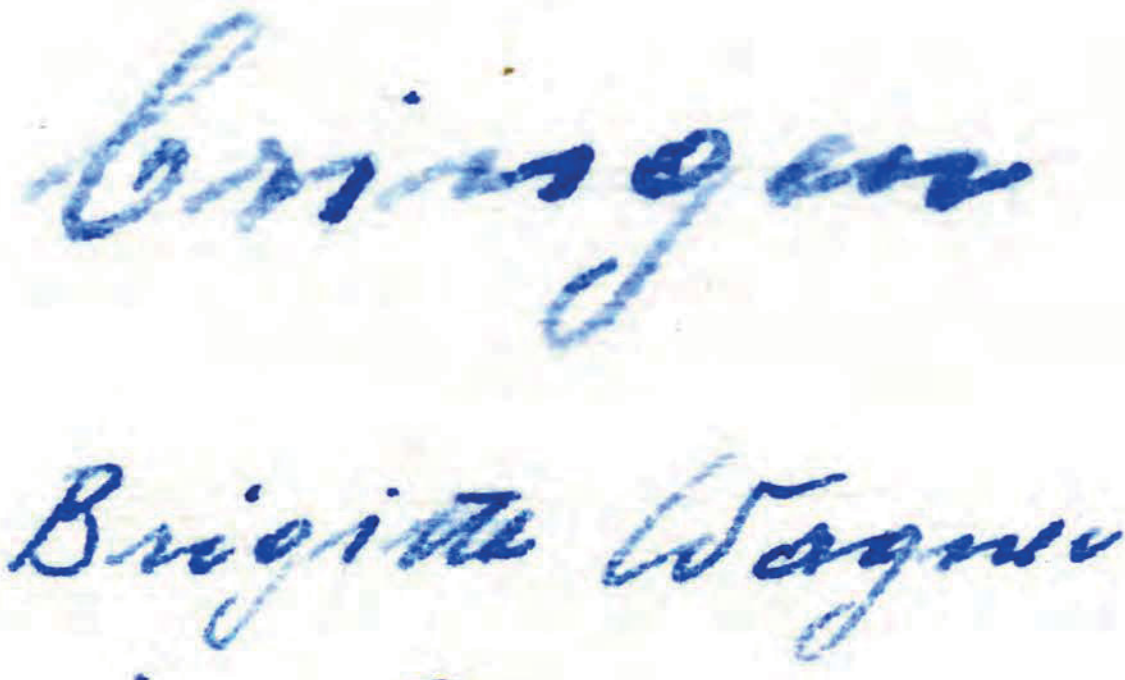 bringen
Brigitte Wagner